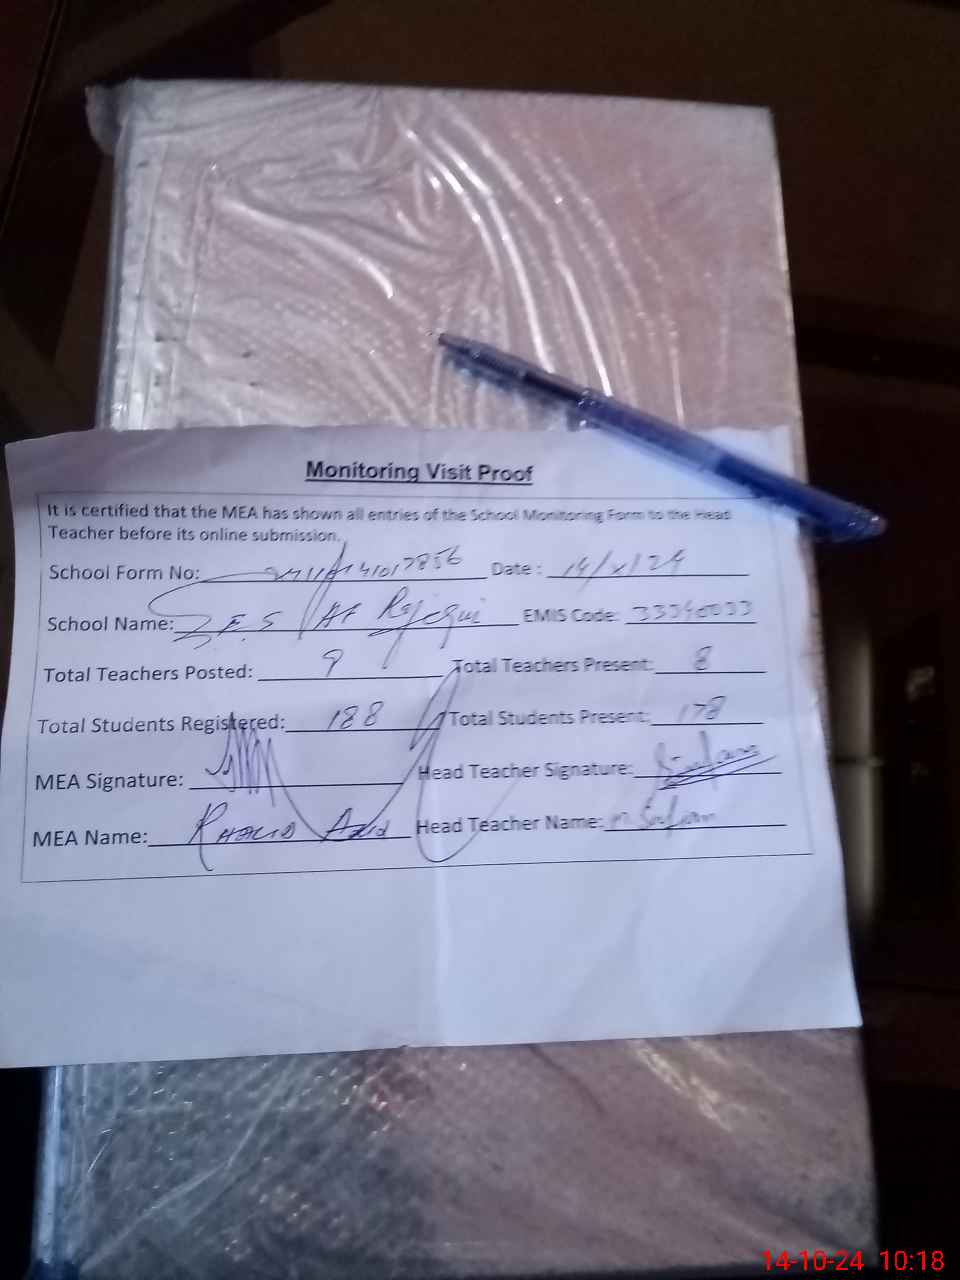 Monitoring Visit Proof
It is certified that the MEA has shown all entries of the School Monitoring Form to the Head
Teacher before its online submission.
School Form No: Date : 14/x/24
School Name: EMIS Code:
Total Teachers Posted: 9 Total Teachers Present: 8
Total Students Registered: 188 Total Students Present: 178
MEA Signature: Head Teacher Signature:
MEA Name: Head Teacher Name:
14-10-24 10:18